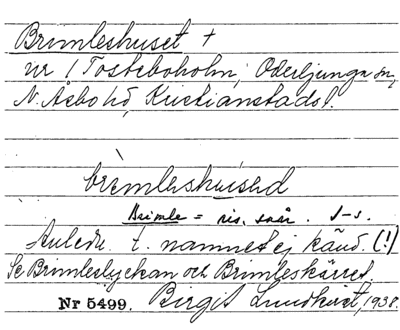 Brimleshuset +
nr 1 Tosteboholm, Oderljunga sn,
N. Åsbo hd, Kristianstads l.
brimleshused
Brimle = ris, snår. I-s.
Anledn. t. namnet ej känd. (!)
Se Brimleslyckan och Brimleskärret.
Nr 5499. Birgit Lundkvist, 1938.